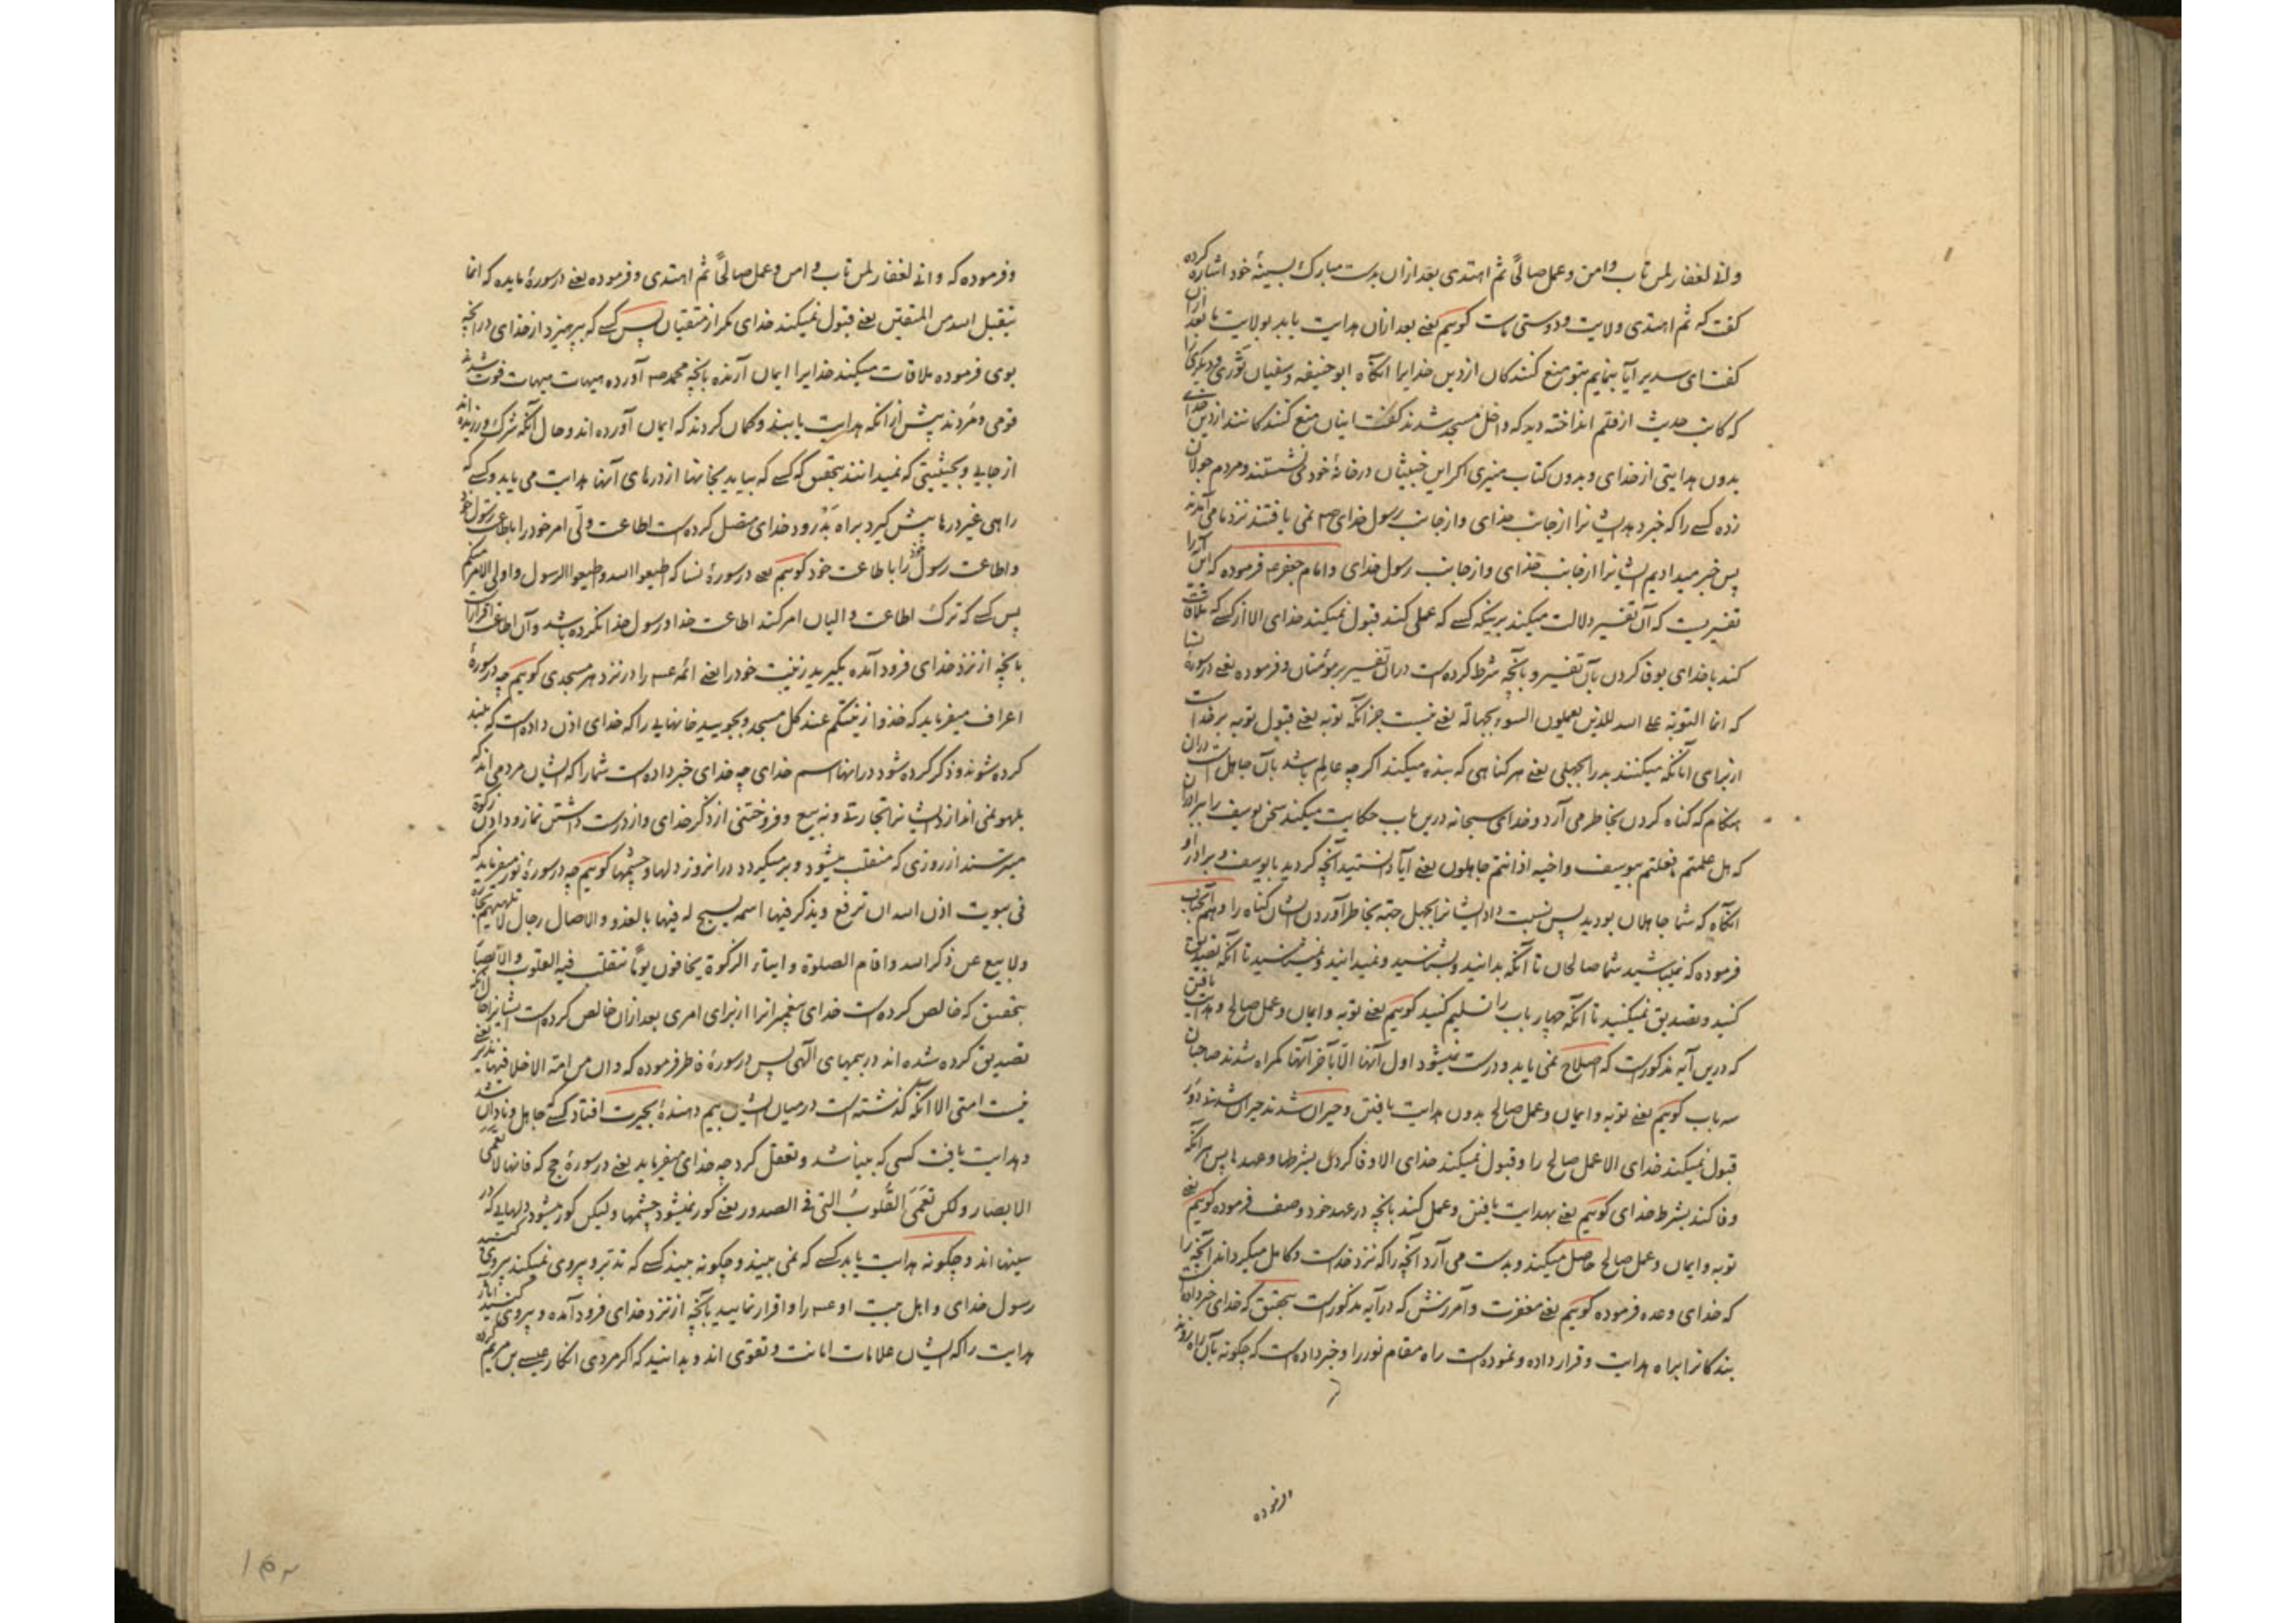 وانی لغفار لمن تاب وامن وعمل صالحًا ثم اهتدی بعد ازان بدست مبارک بسینهٔ خود اشاره کرده
کفت که ثم اهتدی ولایت ودوستی ماست کوییم یعنی بعد ازان هدایت یابد بولایت ما بعد ازان
کفت ای سدیر آیا بنمایم بتو منع کنندکان از دین خدایرا آنکاه ابو حنیفه وسفیان ثوری ودیکری را
که کاتب حدیث از قلم انداخته دید که داخل مسجد شدند کفت اینان منع کنندکانند از دین خدای
بدون هدایتی از خدای وبدون کتاب منیری اکر این خبیثان در خانهٔ خود می نشستند ومردم جولان
زده کسی را که خبر دهد ایشانرا از جانب خدای واز جانب رسول خدای صم نمی یافتند نزد ما می آمدند
پس خبر میدادیم ایشانرا از جانب خدای واز جانب رسول خدای وامام جعفر عم فرموده که این آیه را
تفسیریست که آن تفسیر دلالت میکند برینکه کسی که عملی کند قبول نمیکند خدای الا از کسی که ملاقات
کند با خدای بوفا کردن بآن تفسیر وبآنچه شرط کرده است دران تفسیر بر مؤمنان وفرموده یعنی در سورهٔ نسا
که انما التوبة علی الله للذین یعملون السوء بجهالة یعنی نیست جز آنکه توبه یعنی قبول توبه بر خداست
از برای آنانکه میکنند بد را بجهلی یعنی هر کناهی که بنده میکند اکر چه عالم باشد بآن جاهل است دران
هنکام که کناه کردن بخاطر می آرد وخدای سبحانه درین باب حکایت میکند سخن یوسف را ببرادران
که هل علمتم ما فعلتم بیوسف واخیه اذ انتم جاهلون یعنی آیا دانستید آنچه کردید با یوسف وبرادر او
آنکاه که شما جاهلان بودید پس نسبت داد ایشانرا بجهل جهة بخاطر آوردن ایشان کناه را وهم آنجناب
فرموده که نمیباشید شما صالحان تا آنکه بدانید وبشناسید ونمیدانید ونمیشناسید تا آنکه تصدیق
کنید وتصدیق نمیکنید تا آنکه چهار باب را تسلیم کنید کوییم یعنی توبه وایمان وعمل صالح وهدایت یافتن
که درین آیه مذکورست که اصلاح نمی یابد ودرست نمیشود اول آنها الا بآخر آنها کمراه شدند صاحبان
سه باب کوییم یعنی توبه وایمان وعمل صالح بدون هدایت یافتن وحیران شدند حیران شدنی دور
قبول نمیکند خدای الا عمل صالح را وقبول نمیکند خدای الا وفا کردن بشرطها وعهدها پس هر آنکه
وفا کند بشرط خدای کوییم یعنی بهدایت یافتن وعمل کند بآنچه در عهد خود وصف فرموده کوییم یعنی
توبه وایمان وعمل صالح حاصل میکند وبدست می آرد آنچه را که نزد خداست وکامل میکرداند آنچه را
که خدای وعده فرموده کوییم یعنی مغفرت وآمرزش که در آیه مذکورست بتحقیق که خدای خبر داده است
بندکانرا براه هدایت وقرار داده ونموده است راه مقام نور را وخبر داده است که چکونه بآن راه روند
وفرموده
وفرموده که وانی لغفار لمن تاب وامن وعمل صالحًا ثم اهتدی وفرموده یعنی در سورهٔ مایده که انما
یتقبل الله من المتقین یعنی قبول نمیکند خدای مکر از متقیان پس کسی که بپرهیزد از خدای در آنچه
بوی فرموده ملاقات میکند خدایرا ایمان آرنده بآنچه محمد صم آورده هیهات هیهات فوت شدند
قومی ومردند پیش ازانکه هدایت یابند وکمان کردند که ایمان آورده اند وحال آنکه شرک ورزیده اند
از جایی وبحیثیتی که نمیدانند بتحقیق که کسی که بیاید بخانها از درهای آنها هدایت می یابد وکسی که
راهی غیر درها پیش کیرد براه بد رود خدای متصل کرده است اطاعت ولی امر خود را باطاعت رسول خود
واطاعت رسول خود را باطاعت خود کوییم یعنی در سورهٔ نسا که اطیعوا الله واطیعوا الرسول واولی الامر منکم
پس کسی که ترک اطاعت والیان امر کند اطاعت خدا ورسول خدا نکرده باشد وآن اطاعت اقرارست
بآنچه از نزد خدای فرود آمده بکیرید زینت خود را یعنی ائمه عم را در نزد هر مسجدی کوییم چه در سورهٔ
اعراف میفرماید که خذوا زینتکم عند کل مسجد وبجویید خانهایی را که خدای اذن داده است که بلند
کرده شوند وذکر کرده شود در انها اسم خدای چه خدای خبر داده است شما را که ایشان مردمی اند که
بلهو نمی اندازد ایشانرا تجارتی ونه بیع وفروختنی از ذکر خدای واز درست داشتن نماز ودادن زکوة
میترسند از روزی که منقلب میشود وبرمیکردد در انروز دلها وچشمها کوییم چه در سورهٔ نور میفرماید که
فی بیوت اذن الله ان ترفع ویذکر فیها اسمه یسبح له فیها بالغدو والاصال رجال لا تلهیهم تجارة
ولا بیع عن ذکر الله واقام الصلوة وایتاء الزکوة یخافون یومًا تتقلب فیه القلوب والابصار
بتحقیق که خالص کرده است خدای پیغمبرانرا از برای امری بعد ازان خالص کرده است ایشانرا حال آنکه
تصدیق کرده شده اند در بیمهای الهی پس در سورهٔ فاطر فرموده که وان من امة الا خلا فیها نذیر یعنی
نیست امتی الا آنکه کذشته است در میان ایشان بیم دهندهٔ بحیرت افتاد کسی که جاهل ونادان شد
وهدایت یافت کسی که بینا شد وتعقل کرد چه خدای میفرماید یعنی در سورهٔ حج که فانها لا تعمی
الابصار ولکن تعمی القلوب التی فی الصدور یعنی کور نمیشود چشمها ولیکن کور میشود دلهایی که در
سینها اند وچکونه هدایت یابد کسی که نمی بیند وچکونه بیند کسی که تدبر وپیروی نمیکند پیروی کنید
رسول خدای واهل بیت او عم را واقرار نمایید بآنچه از نزد خدای فرود آمده وپیروی کنید آثار
هدایت را که ایشان علامات امانت وتقوی اند وبدانید که اکر مردی انکار عیسی بن مریم کرده